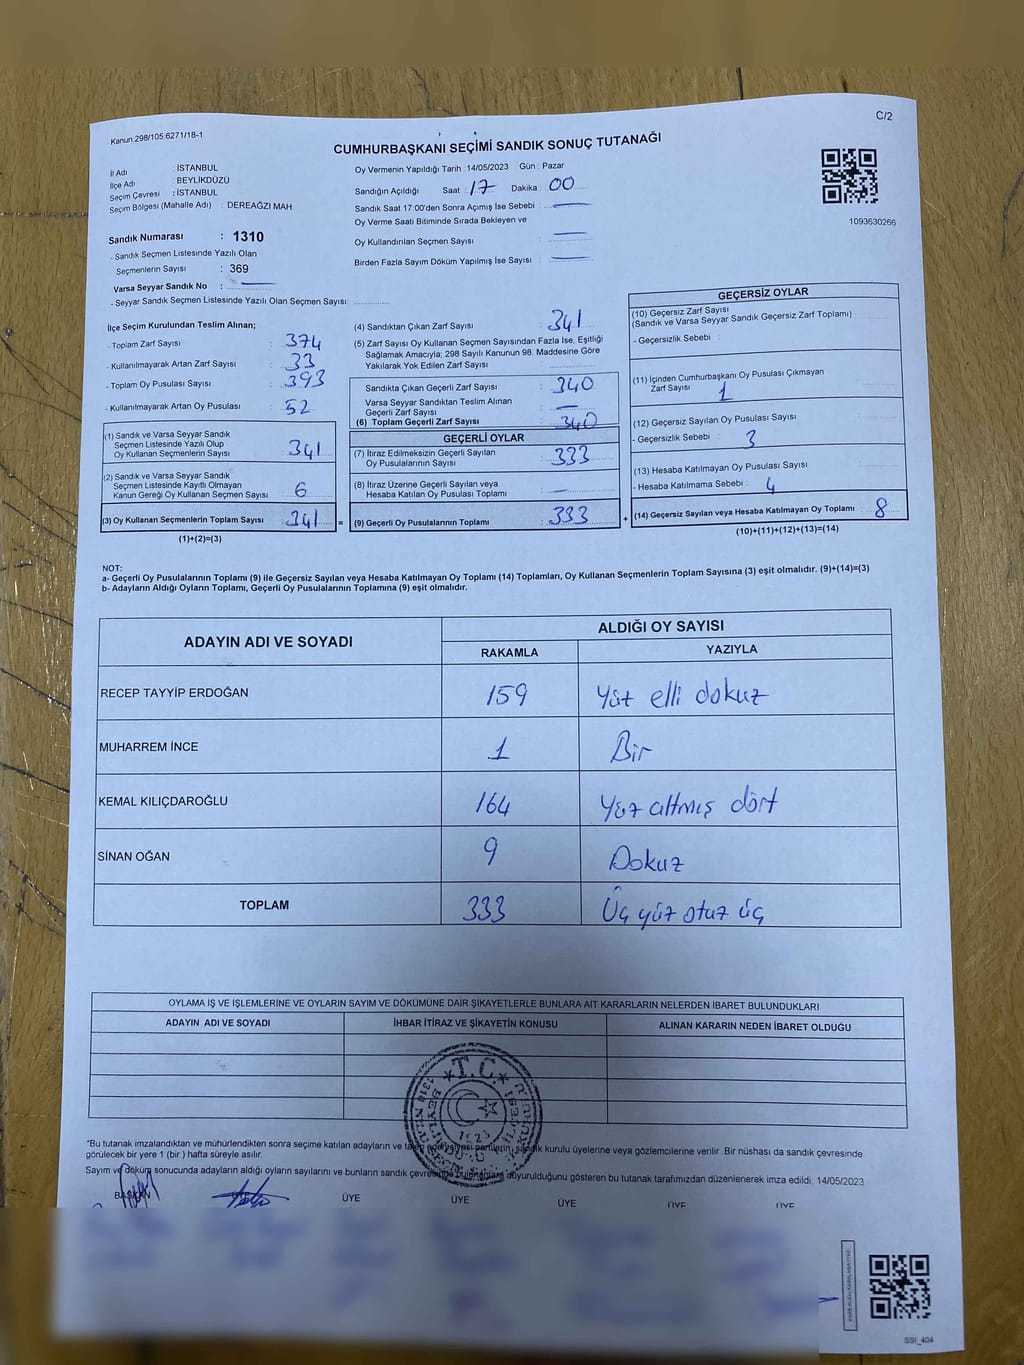 C/2
Kanun:298/105:6271/18-1
CUMHURBAŞKANI SEÇİMİ SANDIK SONUÇ TUTANAĞI
İl Adı : İSTANBUL
İlçe Adı : BEYLİKDÜZÜ
Seçim Çevresi : İSTANBUL
Seçim Bölgesi (Mahalle Adı) : DEREAĞZI MAH.
Oy Vermenin Yapıldığı Tarih : 14/05/2023 Gün : Pazar
Sandığın Açıldığı Saat : 17 Dakika : 00
Sandık Saat 17:00'den Sonra Açımış İse Sebebi :
Oy Verme Saati Bitiminde Sırada Bekleyen ve
Oy Kullandırılan Seçmen Sayısı :
Birden Fazla Sayım Döküm Yapılmış İse Sayısı :
1093630266
Sandık Numarası : 1310
- Sandık Seçmen Listesinde Yazılı Olan
Seçmenlerin Sayısı : 369
Varsa Seyyar Sandık No :
- Seyyar Sandık Seçmen Listesinde Yazılı Olan Seçmen Sayısı:
İlçe Seçim Kurulundan Teslim Alınan;
- Toplam Zarf Sayısı : 374
- Kullanılmayarak Artan Zarf Sayısı : 33
- Toplam Oy Pusulası Sayısı : 393
- Kullanılmayarak Artan Oy Pusulası : 52
(1) Sandık ve Varsa Seyyar Sandık
Seçmen Listesinde Yazılı Olup
Oy Kullanan Seçmenlerin Sayısı : 341
(2) Sandık ve Varsa Seyyar Sandık
Seçmen Listesinde Kayıtlı Olmayan
Kanun Gereği Oy Kullanan Seçmen Sayısı : 6
(3) Oy Kullanan Seçmenlerin Toplam Sayısı : 341 =
(1)+(2)=(3)
(4) Sandıktan Çıkan Zarf Sayısı : 341
(5) Zarf Sayısı Oy Kullanan Seçmen Sayısından Fazla İse, Eşitliği
Sağlamak Amacıyla; 298 Sayılı Kanunun 98. Maddesine Göre
Yakılarak Yok Edilen Zarf Sayısı :
Sandıkta Çıkan Geçerli Zarf Sayısı : 340
Varsa Seyyar Sandıktan Teslim Alınan
Geçerli Zarf Sayısı :
(6) Toplam Geçerli Zarf Sayısı : 340
GEÇERLİ OYLAR
(7) İtiraz Edilmeksizin Geçerli Sayılan
Oy Pusulalarının Sayısı : 333
(8) İtiraz Üzerine Geçerli Sayılan veya
Hesaba Katılan Oy Pusulası Toplamı :
(9) Geçerli Oy Pusulalarının Toplamı : 333 +
GEÇERSİZ OYLAR
(10) Geçersiz Zarf Sayısı
(Sandık ve Varsa Seyyar Sandık Geçersiz Zarf Toplamı) :
- Geçersizlik Sebebi :
(11) İçinden Cumhurbaşkanı Oy Pusulası Çıkmayan
Zarf Sayısı : 1
(12) Geçersiz Sayılan Oy Pusulası Sayısı :
- Geçersizlik Sebebi : 3
(13) Hesaba Katılmayan Oy Pusulası Sayısı :
- Hesaba Katılmama Sebebi : 4
(14) Geçersiz Sayılan veya Hesaba Katılmayan Oy Toplamı : 8
(10)+(11)+(12)+(13)=(14)
NOT:
a- Geçerli Oy Pusulalarının Toplamı (9) ile Geçersiz Sayılan veya Hesaba Katılmayan Oy Toplamı (14) Toplamları, Oy Kullanan Seçmenlerin Toplam Sayısına (3) eşit olmalıdır. (9)+(14)=(3)
b- Adayların Aldığı Oyların Toplamı, Geçerli Oy Pusulalarının Toplamına (9) eşit olmalıdır.
ADAYIN ADI VE SOYADI ALDIĞI OY SAYISI
RAKAMLA YAZIYLA
RECEP TAYYİP ERDOĞAN 159 Yüz elli dokuz
MUHARREM İNCE 1 Bir
KEMAL KILIÇDAROĞLU 164 Yüz altmış dört
SİNAN OĞAN 9 Dokuz
TOPLAM 333 Üç yüz otuz üç
OYLAMA İŞ VE İŞLEMLERİNE VE OYLARIN SAYIM VE DÖKÜMÜNE DAİR ŞİKAYETLERLE BUNLARA AİT KARARLARIN NELERDEN İBARET BULUNDUKLARI
ADAYIN ADI VE SOYADI İHBAR İTİRAZ VE ŞİKAYETİN KONUSU ALINAN KARARIN NEDEN İBARET OLDUĞU
T.C.
1923
*Bu tutanak imzalandıktan ve mühürlendikten sonra seçime katılan adayların ve sandık kurulu üyelerine veya gözlemcilerine verilir. Bir nüshası da sandık çevresinde
görülecek bir yere 1 (bir.) hafta süreyle asılır.
Sayım ve döküm sonucunda adayların aldığı oyların sayılarını ve bunların sandık çevresinde duyurulduğunu gösteren bu tutanak tarafımızdan düzenlenerek imza edildi. 14/05/2023
BAŞKAN ÜYE ÜYE ÜYE ÜYE ÜYE ÜYE
SSI_404